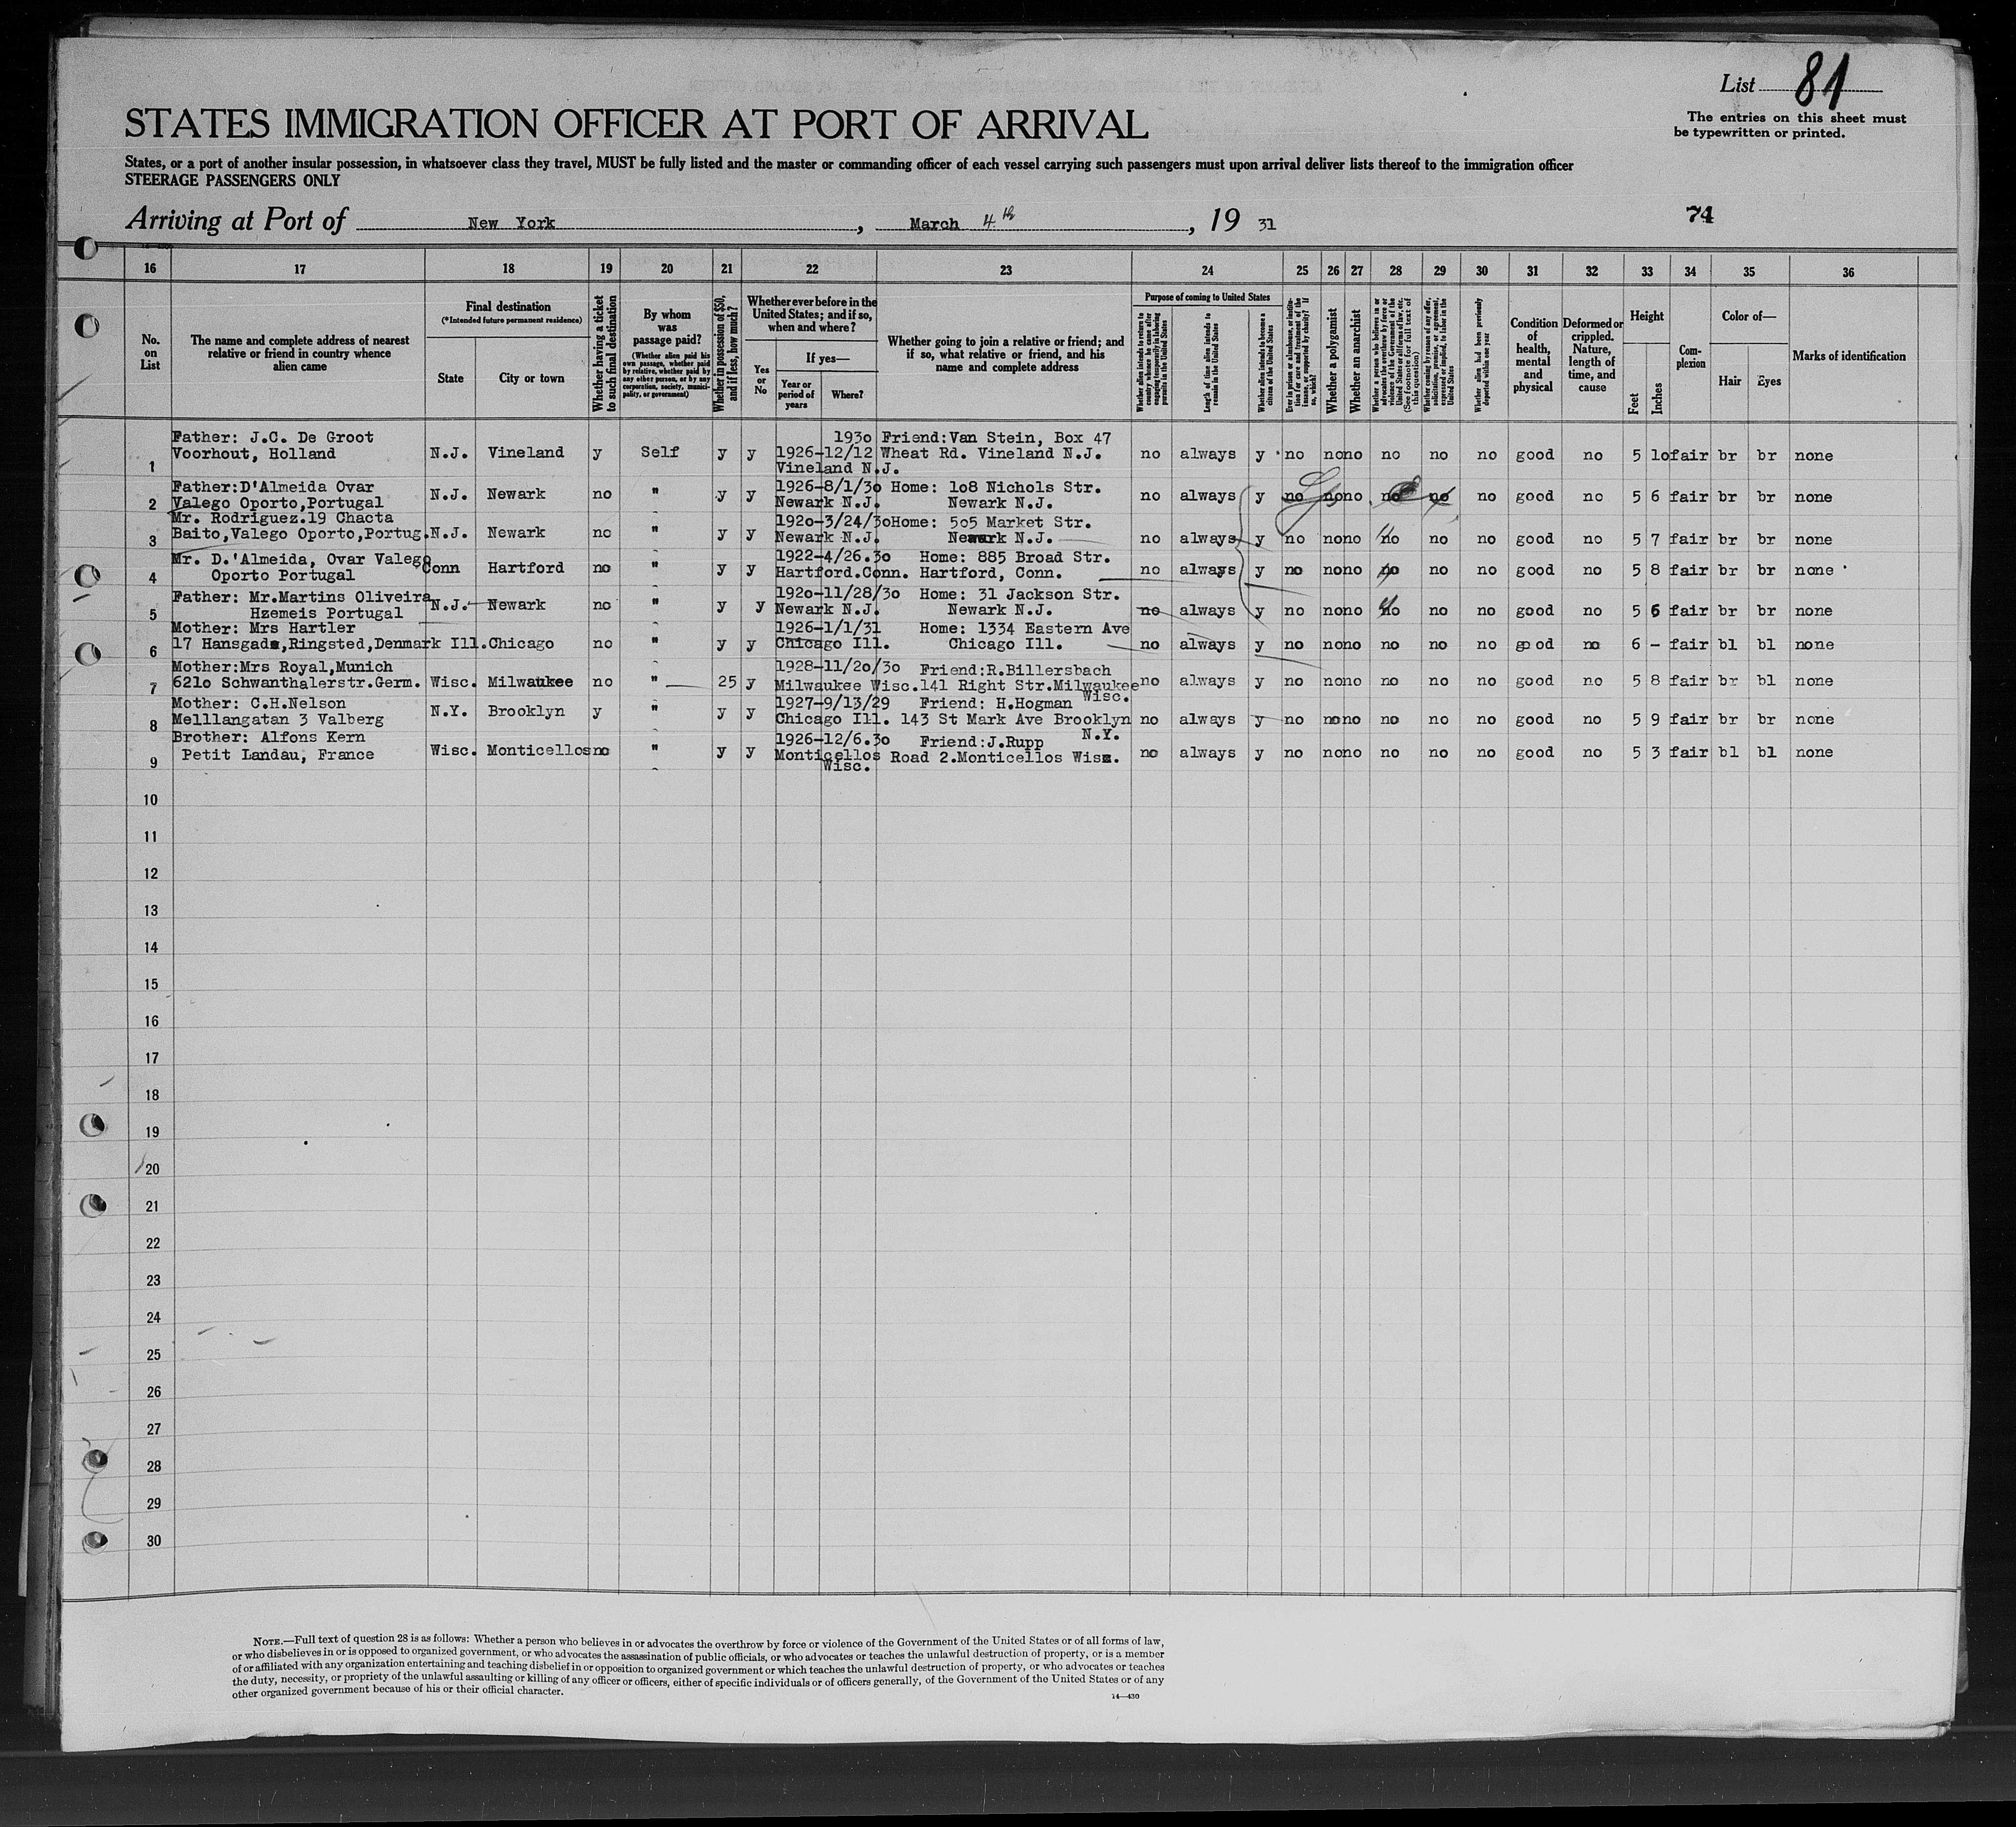 List 81
The entries on this sheet must
be typewritten or printed.
STATES IMMIGRATION OFFICER AT PORT OF ARRIVAL
States, or a port of another insular possession, in whatsoever class they travel, MUST be fully listed and the master or commanding officer of each vessel carrying such passengers must upon arrival deliver lists thereof to the immigration officer
STEERAGE PASSENGERS ONLY
Arriving at Port of New York, March 4th, 19 31
74
16 17 18 19 20 21 22 23 24 25 26 27 28 29 30 31 32 33 34 35 36
No. on List
The name and complete address of nearest
relative or friend in country whence
alien came
Final destination
(*Intended future permanent residence)
State
City or town
Whether having a ticket
to such final destination
By whom
was
passage paid?
(Whether alien paid his
own passage, whether paid
by relative, whether paid by
any other person, or by any
corporation, society, munici-
pality, or government)
Whether in possession of $50,
and if less, how much?
Whether ever before in the
United States; and if so,
when and where?
Yes or No
If yes—
Year or
period of
years
Where?
Whether going to join a relative or friend; and
if so, what relative or friend, and his
name and complete address
Purpose of coming to United States
Whether alien intends to return to
country whence he came after
engaging temporarily in laboring
pursuits in the United States
Length of time alien intends to
remain in the United States
Whether alien intends to become a
citizen of the United States
Ever in prison or almshouse, or institu-
tion for care and treatment of the
insane, or supported by charity? If
so, which?
Whether a polygamist
Whether an anarchist
Whether a person who believes in or
advocates the overthrow by force or
violence of the Government of the
United States or all forms of law, etc.
(See footnote for full text of
this question)
Whether coming by reason of any offer,
solicitation, promise, or agreement,
expressed or implied, to labor in the
United States
Whether alien had been previously
deported within one year
Condition
of
health,
mental
and
physical
Deformed or
crippled.
Nature,
length of
time, and
cause
Height
Feet
Inches
Com-
plexion
Color of—
Hair
Eyes
Marks of identification
Father: J.C. De Groot 1930 Friend:Van Stein, Box 47
1 Voorhout, Holland N.J. Vineland y Self y y 1926-12/12 Wheat Rd. Vineland N.J. no always y no no no no no no good no 5 10 fair br br none
Vineland N.J.
Father:D'Almeida Ovar 1926-8/1/30 Home: 108 Nichols Str.
2 Valego Oporto,Portugal N.J. Newark no " y y Newark N.J. Newark N.J. no always y no no no no no no good no 5 6 fair br br none
Mr. Rodriguez.19 Chacta 1920-3/24/30 Home: 505 Market Str.
3 Baito,Valego Oporto,Portug. N.J. Newark no " y y Newark N.J. Newark N.J. no always y no no no no no no good no 5 7 fair br br none
Mr. D.'Almeida, Ovar Valego 1922-4/26.30 Home: 885 Broad Str.
4 Oporto Portugal Conn Hartford no " y y Hartford.Conn. Hartford, Conn. no always y no no no no no no good no 5 8 fair br br none
Father: Mr.Martins Oliveira 1920-11/28/30 Home: 31 Jackson Str.
5 Hzemeis Portugal N.J. Newark no " y y Newark N.J. Newark N.J. no always y no no no no no no good no 5 6 fair br br none
Mother: Mrs Hartler 1926-1/1/31 Home: 1334 Eastern Ave
6 17 Hansgade,Ringsted,Denmark Ill. Chicago no " y y Chicago Ill. Chicago Ill. no always y no no no no no no good no 6 - fair bl bl none
Mother:Mrs Royal,Munich 1928-11/20/30 Friend:R.Billersbach
7 6210 Schwanthalerstr.Germ. Wisc. Milwaukee no " 25 y Milwaukee Wisc. 141 Right Str.Milwaukee Wisc. no always y no no no no no no good no 5 8 fair br bl none
Mother: C.H.Nelson 1927-9/13/29 Friend: H.Hogman
8 Melllangatan 3 Valberg N.Y. Brooklyn y " y y Chicago Ill. 143 St Mark Ave Brooklyn N.Y. no always y no no no no no no good no 5 9 fair br br none
Brother: Alfons Kern 1926-12/6.30 Friend:J.Rupp
9 Petit Landau, France Wisc. Monticellos no " y y Monticellos Wisc. Road 2.Monticellos Wisc. no always y no no no no no no good no 5 3 fair bl bl none
10
11
12
13
14
15
16
17
18
19
20
21
22
23
24
25
26
27
28
29
30
NOTE.—Full text of question 28 is as follows: Whether a person who believes in or advocates the overthrow by force or violence of the Government of the United States or of all forms of law,
or who disbelieves in or is opposed to organized government, or who advocates the assassination of public officials, or who advocates or teaches the unlawful destruction of property, or is a member
of or affiliated with any organization entertaining and teaching disbelief in or opposition to organized government or which teaches the unlawful destruction of property, or who advocates or teaches
the duty, necessity, or propriety of the unlawful assaulting or killing of any officer or officers, either of specific individuals or of officers generally, of the Government of the United States or of any
other organized government because of his or their official character.
14—430